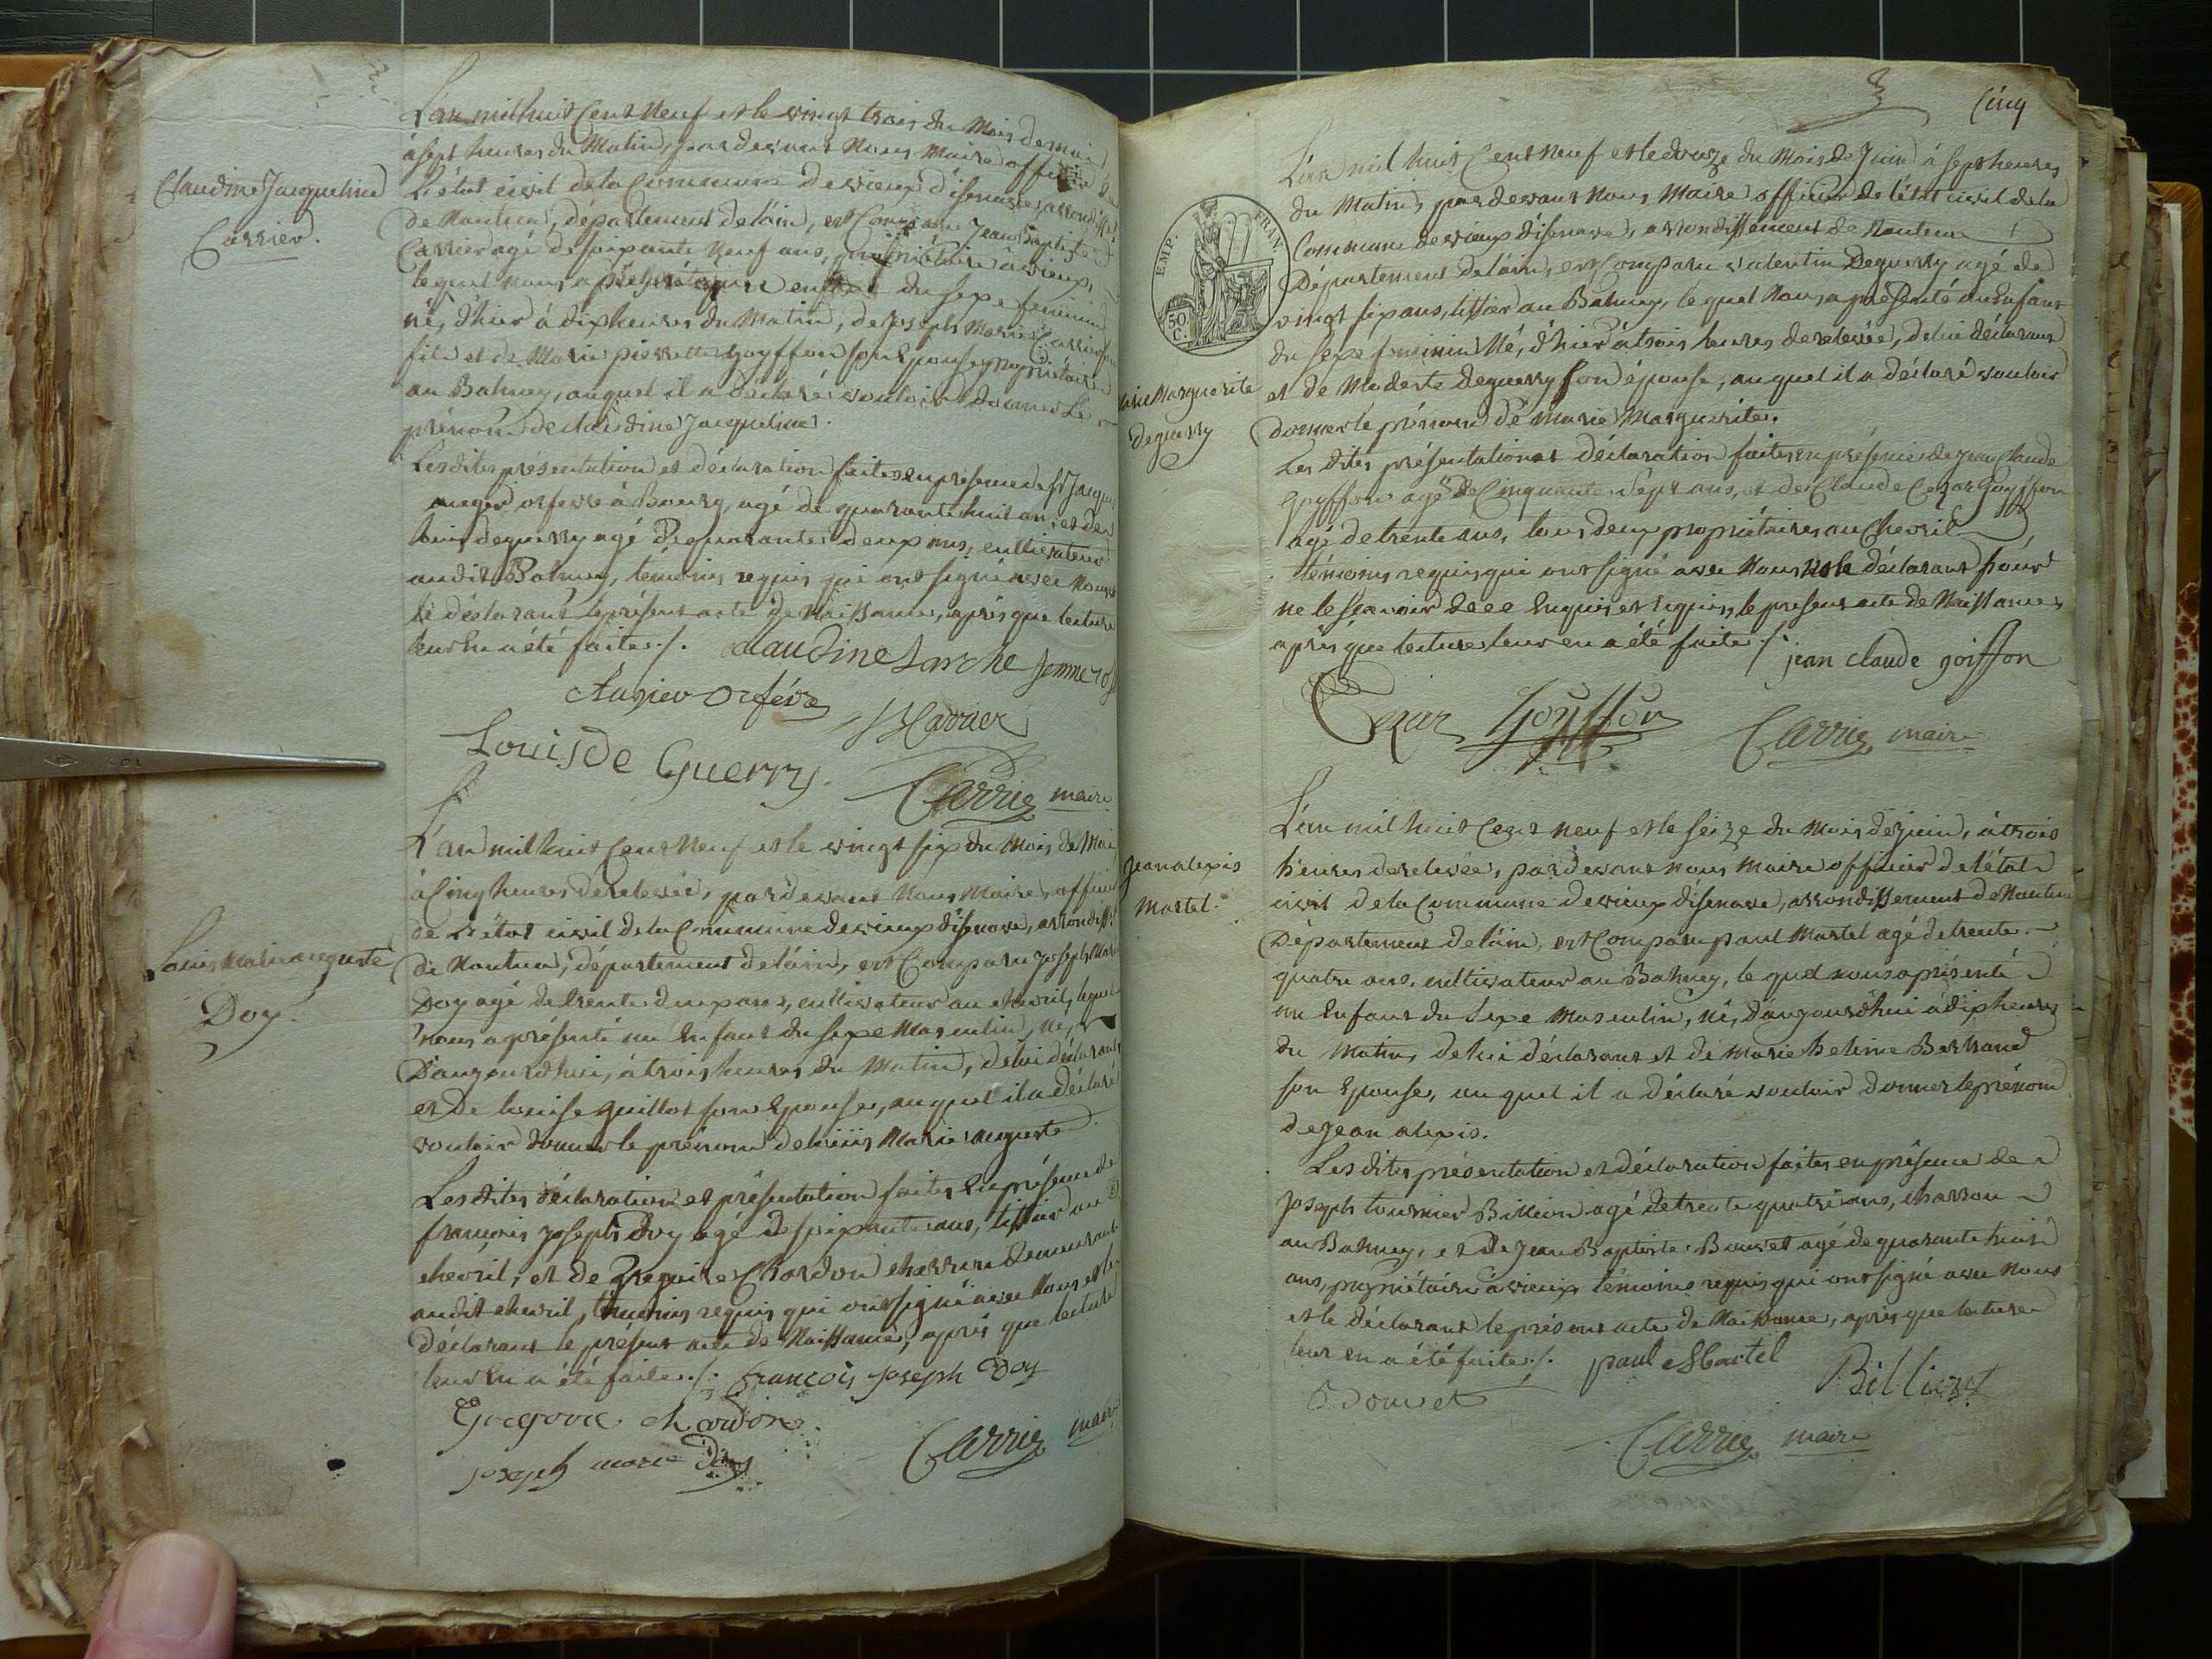 L'an mil huit Cent Neuf et le vingt trois du Mois de mai
à sept heures du Matin, par devant Nous Maire officier de
L'état civil de la Commune de vieux d'isenave, arrondisst
de Nantua, département de l'ain, est Comparu Jean Baptiste
Claudine Jacqueline
Carrier.
Carrier agé de soixante Neuf ans, propriétaire a vieux,
lequel nous a présenté un enfant du sexe feminin
né, d'hier à dix heures du Matin, de Joseph Marie Carrier son
fils et de Marie pierrette Goyffon son Epouse, propriétaire
au Balmey, auquel il a déclaré vouloir donner Le
prénom de claudine Jacqueline.
Les dites présentation et déclaration faites en présence de Sr Jacques
augier orfevre à Bourg, agé de quarante huit ans, et de
Louis deguerry agé de quarante deux ans, cultivateur
audit Balmey, témoins requis qui ont signé avec Nous et
le déclarant le présent acte de Naissance, après que lecture
leur en a été faite ./. claudine Larche femme
Augier Orfévre
Carrier
Louis De Guerry.
Carrier maire
L'an mil huit Cent Neuf et le vingt six du Mois de Mai
à Cinq heures de relevée, par devant Nous Maire, officier
de L'état civil de la Commune de vieux d'isenave, arrondisst
Louis Marie auguste
Doy.
de Nantua, département de l'ain, est Comparu Joseph Marie
Doy agé de trente deux ans, cultivateur au chevril, lequel
nous a présenté un Enfant du sexe Masculin, né,
D'aujourdhui, à trois heures du Matin, de lui déclarant
et de Louise Guillot son Epouse, auquel il a déclaré
vouloir donner le prénom de Louis Marie auguste.
Les dites déclaration et présentation faites En présence de
françois Joseph Doy agé de soixante ans, tissier au
chevril, et de Gregoire Chardon charron demeurant
audit chevril, témoins requis qui ont signé avec Nous et le
déclarant le présent acte de Naissance, après que lecture
leur En a été faite ./. françois joseph Doy
Gregoire chardon.
joseph marie Doy
Carrier maire
Cinq
L'an mil huit Cent Neuf et le douze du Mois de Juin à sept heures
du Matin, par devant Nous Maire officier de l'état civil de la
Commune de vieux d'isenave, arrondissement de Nantua
EMP. FRAN.
50
C.
Département de l'ain, est Comparu valentin Deguerry agé de
vingt six ans, tissier au Balmey, lequel Nous a présenté un Enfant
du sexe feminin Né, d'hier à trois heures de relevée, de lui déclarant
Marie Marguerite
Deguerry
et de Modeste deguerry son épouse, auquel il a déclaré vouloir
donner le prénom de Marie Marguerite.
Les dites présentation et déclaration faites en présence de Jean Claude
Goyffon agé de Cinquante Sept ans, et de Claude Cezar Goyffon
agé de trente ans, tous deux propriétaires au Chevril
témoins requis qui ont signé avec Nous le déclarant pour
ne le Scavoir de ce Enquis et requis, le présent acte de Naissance
après que lecture leur en a été faite ./.
jean claude goiffon
Cezar Goyffon
Carrier maire
L'an mil huit Cent neuf et le seize du Mois de juin, à trois
Jean alexis
Martel.
heures de relevée, par devant nous Maire officier de l'état
civil de la Commune de vieux d'isenave, arrondissement de Nantua
Département de l'ain, est Comparu paul Martel agé de trente
quatre ans, cultivateur au Balmey, lequel nous a présenté
un Enfant du Sexe Masculin, né, d'aujourd'hui à dix heures
du Matin, de lui déclarant et de Marie heleine Bertrand
son Epouse, auquel il a déclaré vouloir donner le prénom
de jean alexis.
Les dites présentation et déclaration faites en présence de
Joseph tournier Billion agé de trente quatre ans, charron
au Balmey, et de Jean Baptiste Bouvet agé de quarante huit
ans, propriétaire à vieux témoins requis qui ont signé avec nous
et le déclarant le présent acte de Naissance, après que lecture
leur en a été faite ./. paul Martel
Bouvet
Carrier maire